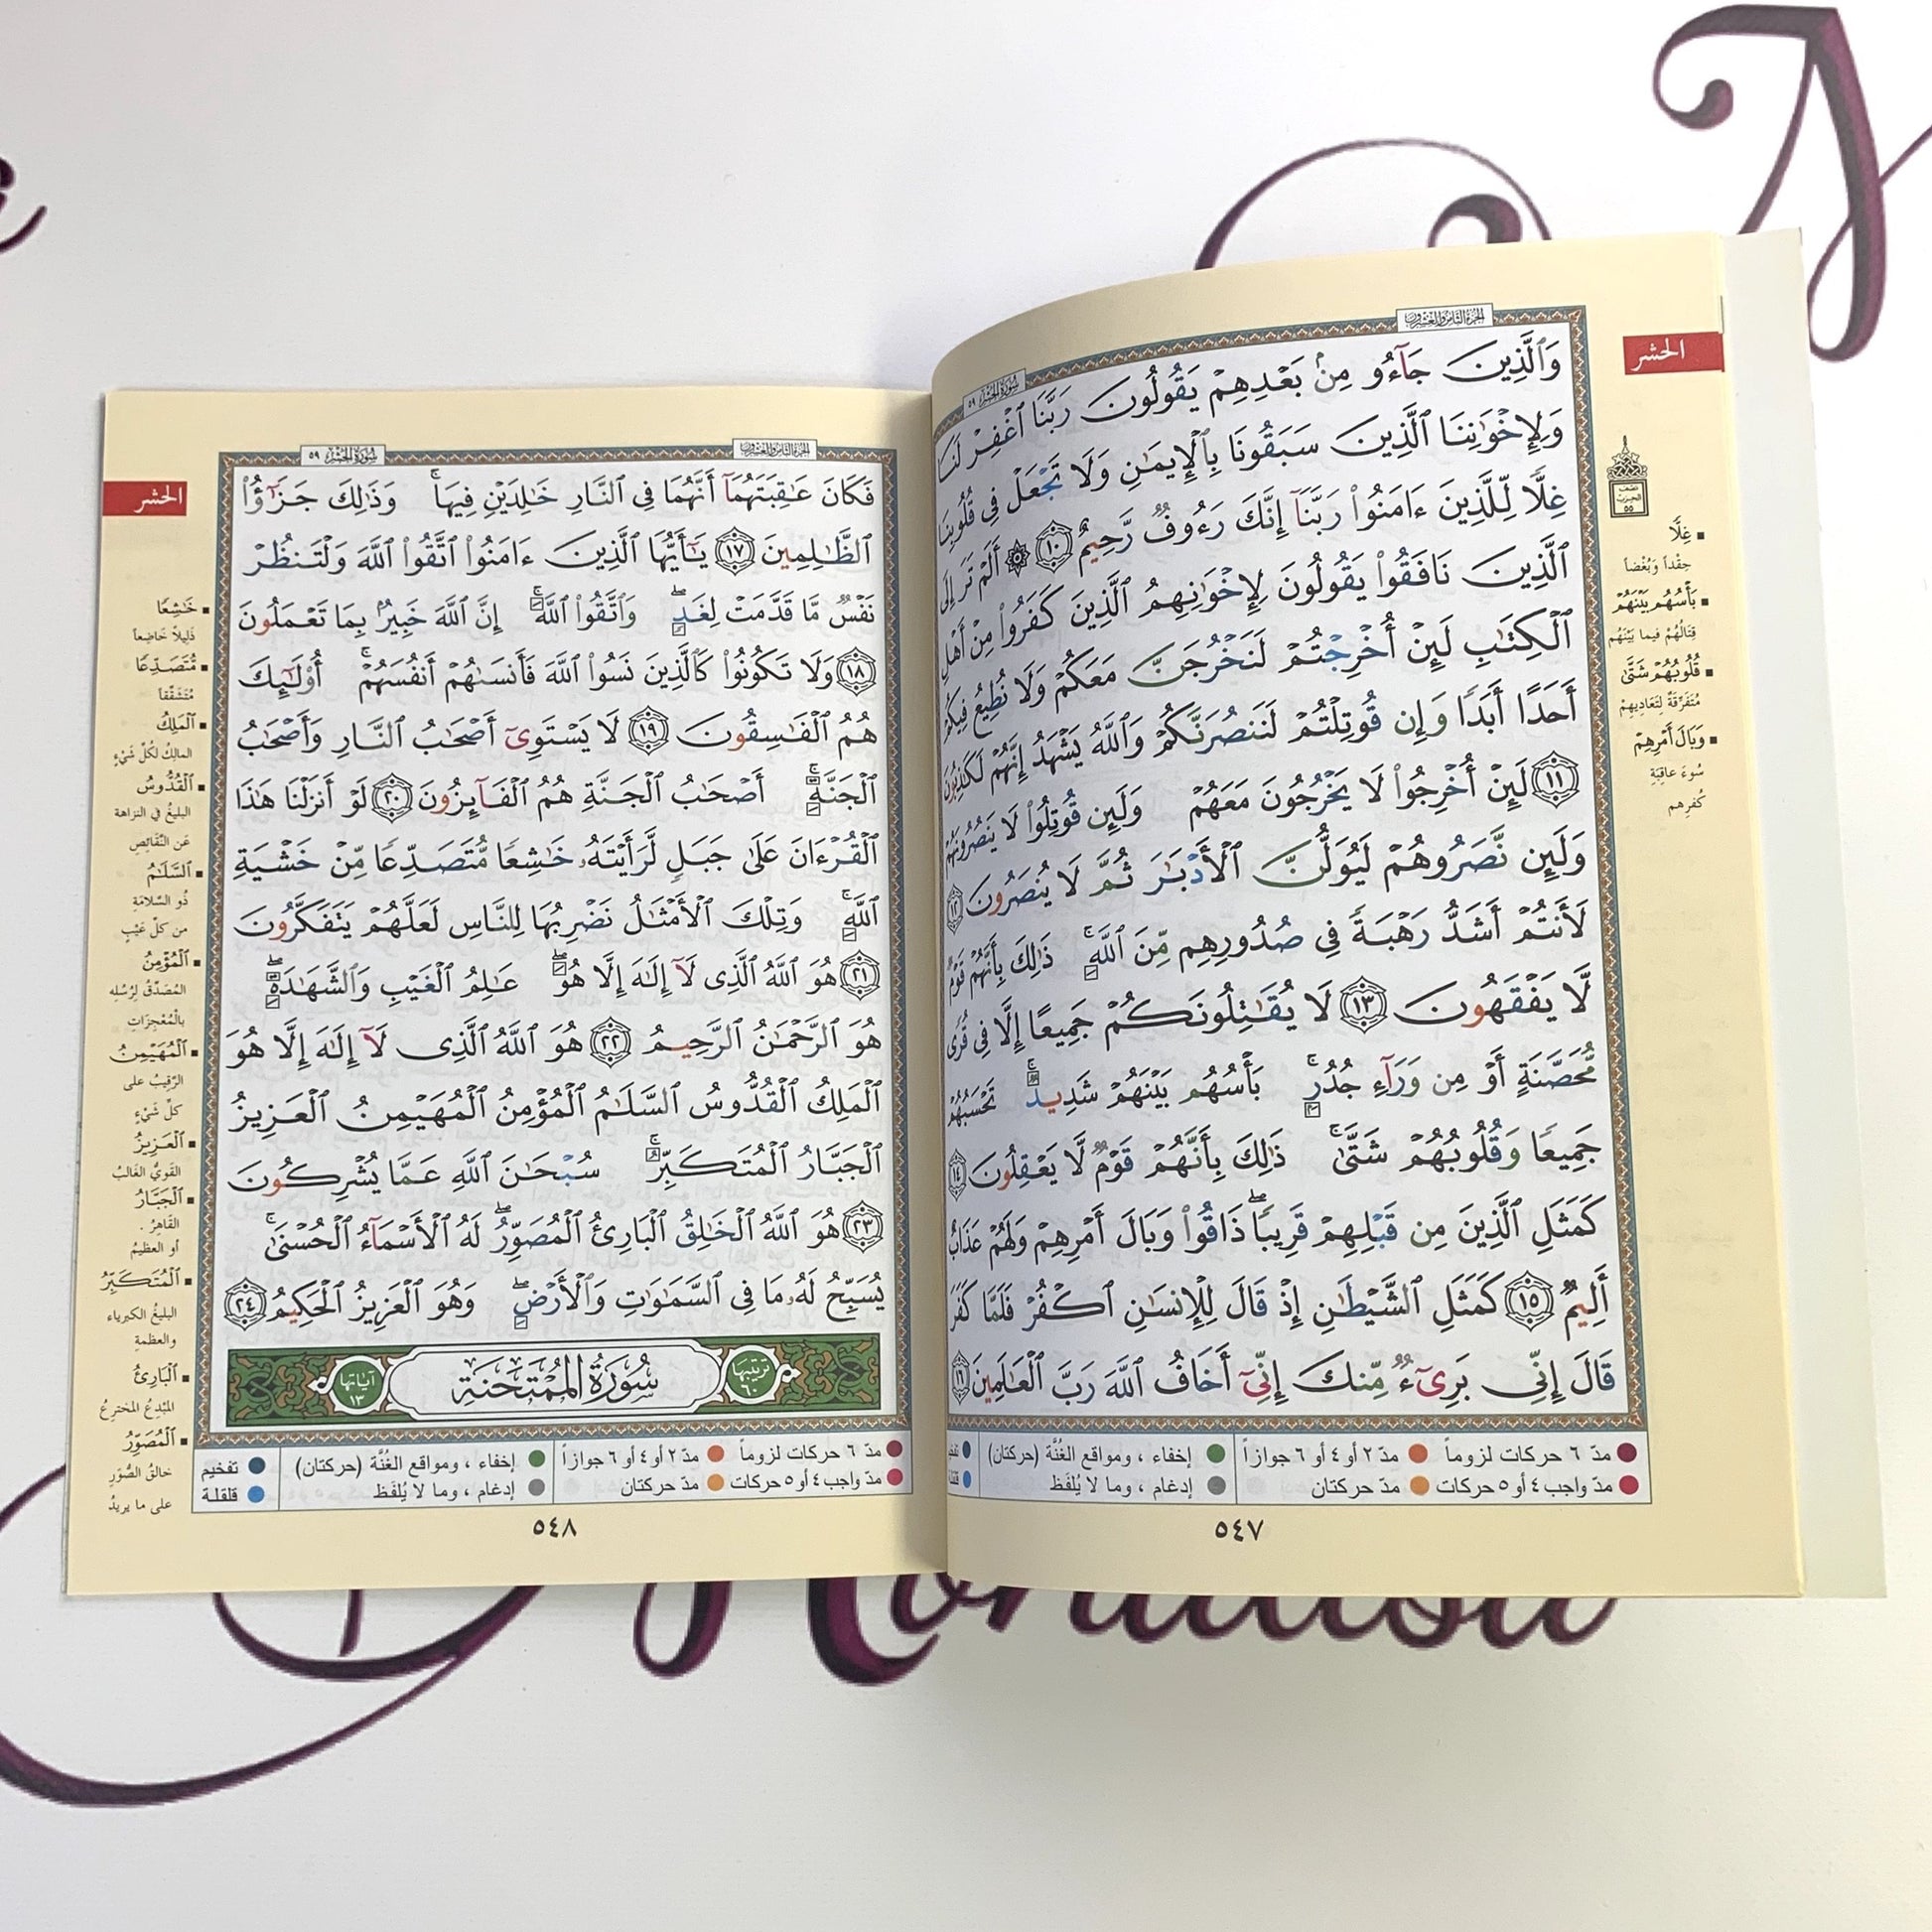 الجزء الثامن والعشرون
سورة الحشر ٥٩
الحشر
وَٱلَّذِينَ جَآءُو مِنۢ بَعْدِهِمْ يَقُولُونَ رَبَّنَا ٱغْفِرْ لَنَا
وَلِإِخْوَٰنِنَا ٱلَّذِينَ سَبَقُونَا بِٱلْإِيمَٰنِ وَلَا تَجْعَلْ فِى قُلُوبِنَا
غِلًّا لِّلَّذِينَ ءَامَنُوا۟ رَبَّنَآ إِنَّكَ رَءُوفٌ رَّحِيمٌ ١٠ ۞ أَلَمْ تَرَ إِلَى
ٱلَّذِينَ نَافَقُوا۟ يَقُولُونَ لِإِخْوَٰنِهِمُ ٱلَّذِينَ كَفَرُوا۟ مِنْ أَهْلِ
ٱلْكِتَٰبِ لَئِنْ أُخْرِجْتُمْ لَنَخْرُجَنَّ مَعَكُمْ وَلَا نُطِيعُ فِيكُمْ
أَحَدًا أَبَدًا وَإِن قُوتِلْتُمْ لَنَنصُرَنَّكُمْ وَٱللَّهُ يَشْهَدُ إِنَّهُمْ لَكَٰذِبُونَ
١١ لَئِنْ أُخْرِجُوا۟ لَا يَخْرُجُونَ مَعَهُمْ وَلَئِن قُوتِلُوا۟ لَا يَنصُرُونَهُمْ
وَلَئِن نَّصَرُوهُمْ لَيُوَلُّنَّ ٱلْأَدْبَٰرَ ثُمَّ لَا يُنصَرُونَ ١٢
لَأَنتُمْ أَشَدُّ رَهْبَةً فِى صُدُورِهِم مِّنَ ٱللَّهِ ۚ ذَٰلِكَ بِأَنَّهُمْ قَوْمٌ
لَّا يَفْقَهُونَ ١٣ لَا يُقَٰتِلُونَكُمْ جَمِيعًا إِلَّا فِى قُرًى
مُّحَصَّنَةٍ أَوْ مِن وَرَآءِ جُدُرٍۭ ۚ بَأْسُهُم بَيْنَهُمْ شَدِيدٌ ۚ تَحْسَبُهُمْ
جَمِيعًا وَقُلُوبُهُمْ شَتَّىٰ ۚ ذَٰلِكَ بِأَنَّهُمْ قَوْمٌ لَّا يَعْقِلُونَ ١٤
كَمَثَلِ ٱلَّذِينَ مِن قَبْلِهِمْ قَرِيبًا ۖ ذَاقُوا۟ وَبَالَ أَمْرِهِمْ وَلَهُمْ عَذَابٌ
أَلِيمٌ ١٥ كَمَثَلِ ٱلشَّيْطَٰنِ إِذْ قَالَ لِلْإِنسَٰنِ ٱكْفُرْ فَلَمَّا كَفَرَ
قَالَ إِنِّى بَرِىٓءٌ مِّنكَ إِنِّىٓ أَخَافُ ٱللَّهَ رَبَّ ٱلْعَٰلَمِينَ ١٦
غِلًّا
حِقْداً وَبُغْضاً
بَأْسُهُم بَيْنَهُمْ
قِتَالُهُمْ فيما بَيْنَهُم
قُلُوبُهُمْ شَتَّىٰ
مُتَفَرِّقَةٌ لِتَعَادِيهِمْ
وَبَالَ أَمْرِهِمْ
سُوءَ عاقِبَةِ
كُفرِهِم
مدّ ٦ حركات لزوماً مدّ ٢ أو ٤ أو ٦ جوازاً إخفاء ، ومواقع الغُنَّة (حركتان)
مدّ واجب ٤ أو ٥ حركات مدّ حركتان إدغام ، وما لا يُلفَظ
٥٤٧
الجزء الثامن والعشرون
سورة الحشر ٥٩
الحشر
فَكَانَ عَٰقِبَتَهُمَآ أَنَّهُمَا فِى ٱلنَّارِ خَٰلِدَيْنِ فِيهَا ۚ وَذَٰلِكَ جَزَٰٓؤُا۟
ٱلظَّٰلِمِينَ ١٧ يَٰٓأَيُّهَا ٱلَّذِينَ ءَامَنُوا۟ ٱتَّقُوا۟ ٱللَّهَ وَلْتَنظُرْ
نَفْسٌ مَّا قَدَّمَتْ لِغَدٍ ۖ وَٱتَّقُوا۟ ٱللَّهَ ۚ إِنَّ ٱللَّهَ خَبِيرٌۢ بِمَا تَعْمَلُونَ
١٨ وَلَا تَكُونُوا۟ كَٱلَّذِينَ نَسُوا۟ ٱللَّهَ فَأَنسَىٰهُمْ أَنفُسَهُمْ ۚ أُو۟لَٰٓئِكَ
هُمُ ٱلْفَٰسِقُونَ ١٩ لَا يَسْتَوِىٓ أَصْحَٰبُ ٱلنَّارِ وَأَصْحَٰبُ
ٱلْجَنَّةِ ۚ أَصْحَٰبُ ٱلْجَنَّةِ هُمُ ٱلْفَآئِزُونَ ٢٠ لَوْ أَنزَلْنَا هَٰذَا
ٱلْقُرْءَانَ عَلَىٰ جَبَلٍ لَّرَأَيْتَهُۥ خَٰشِعًا مُّتَصَدِّعًا مِّنْ خَشْيَةِ
ٱللَّهِ ۚ وَتِلْكَ ٱلْأَمْثَٰلُ نَضْرِبُهَا لِلنَّاسِ لَعَلَّهُمْ يَتَفَكَّرُونَ
٢١ هُوَ ٱللَّهُ ٱلَّذِى لَآ إِلَٰهَ إِلَّا هُوَ ۖ عَٰلِمُ ٱلْغَيْبِ وَٱلشَّهَٰدَةِ ۖ
هُوَ ٱلرَّحْمَٰنُ ٱلرَّحِيمُ ٢٢ هُوَ ٱللَّهُ ٱلَّذِى لَآ إِلَٰهَ إِلَّا هُوَ
ٱلْمَلِكُ ٱلْقُدُّوسُ ٱلسَّلَٰمُ ٱلْمُؤْمِنُ ٱلْمُهَيْمِنُ ٱلْعَزِيزُ
ٱلْجَبَّارُ ٱلْمُتَكَبِّرُ ۚ سُبْحَٰنَ ٱللَّهِ عَمَّا يُشْرِكُونَ
٢٣ هُوَ ٱللَّهُ ٱلْخَٰلِقُ ٱلْبَارِئُ ٱلْمُصَوِّرُ ۖ لَهُ ٱلْأَسْمَآءُ ٱلْحُسْنَىٰ ۚ
يُسَبِّحُ لَهُۥ مَا فِى ٱلسَّمَٰوَٰتِ وَٱلْأَرْضِ ۖ وَهُوَ ٱلْعَزِيزُ ٱلْحَكِيمُ ٢٤
ترتيبها ٦٠ سورة الممتحنة آياتها ١٣
خَٰشِعًا
ذَليلاً خَاضِعاً
مُّتَصَدِّعًا
مُتَشَقِّقاً
ٱلْمَلِكُ
المالِكُ لِكُلِّ شَيْءٍ
ٱلْقُدُّوسُ
البليغُ في النزاهة
عَن النَّقَائِصِ
ٱلسَّلَٰمُ
ذُو السَّلامَةِ
من كلِّ عَيْبٍ
ٱلْمُؤْمِنُ
المُصَدِّقُ لِرُسُلِه
بالْمُعْجِزَاتِ
ٱلْمُهَيْمِنُ
الرَّقِيبُ على
كلِّ شَيْءٍ
ٱلْعَزِيزُ
القَوِيُّ الغَالبُ
ٱلْجَبَّارُ
القَاهِرُ .
أو العظيمُ
ٱلْمُتَكَبِّرُ
البليغُ الكبرياءِ
والعظمةِ
ٱلْبَارِئُ
المُبْدِعُ المخترعُ
ٱلْمُصَوِّرُ
خالقُ الصُّوَرِ
على ما يريدُ
مدّ ٦ حركات لزوماً مدّ ٢ أو ٤ أو ٦ جوازاً إخفاء ، ومواقع الغُنَّة (حركتان) تفخيم
مدّ واجب ٤ أو ٥ حركات مدّ حركتان إدغام ، وما لا يُلفَظ قلقلة
٥٤٨